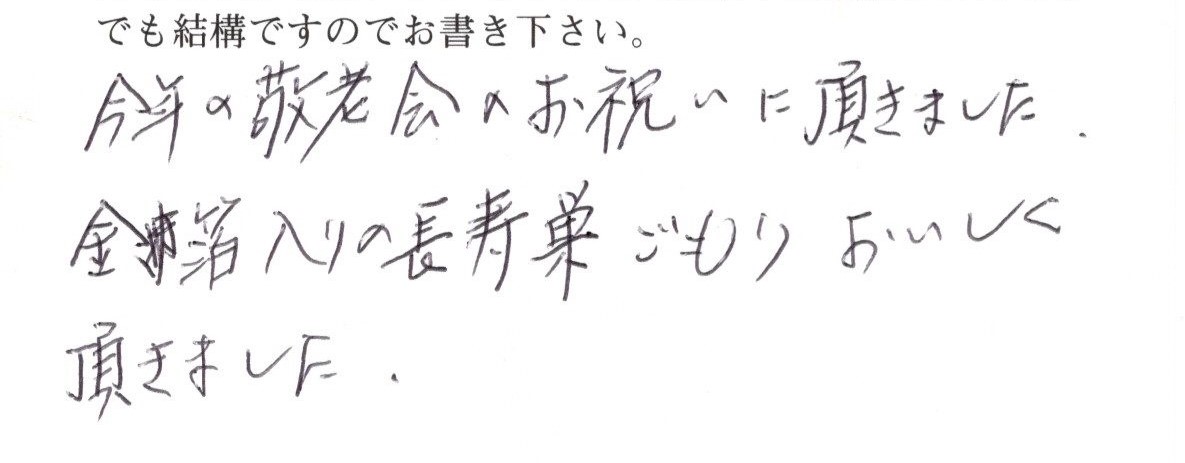 でも結構ですのでお書き下さい。
今年の敬老会のお祝いに頂きました.
金箔入りの長寿巣ごもりおいしく
頂きました.